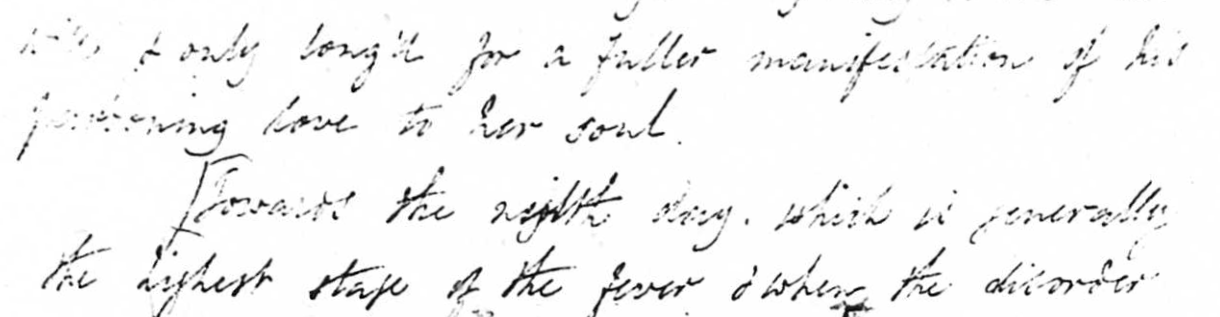 will, & only long'd for a fuller manifestation of his
pardoning love to her soul.
[Towards the day. which is generally
the highest stage of the fever & when the disorder